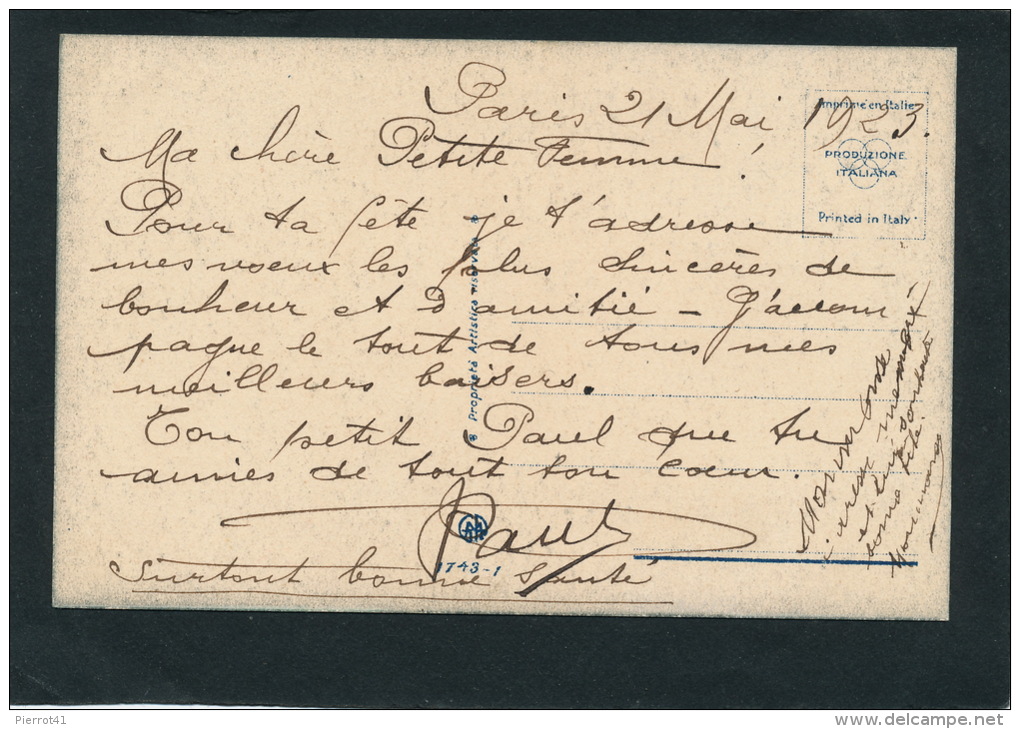 Paris 21 Mai 1923.
Ma chère Petite Femme!
Pour ta fête je t'adresse
mes voeux les plus sincères de
bonheur et d'amitié - J'accom
pagne le tout de tous mes
meilleurs baisers.
Ton petit Paul que tu
aimes de tout ton coeur.
Paul
Surtout bonne Santé
et lui souhaite
bonne fête
Imprimé en Italie
PRODUZIONE
ITALIANA
Printed in Italy
Proprietà Artistica riservata
1743-1
Pierrot41
www.delcampe.net